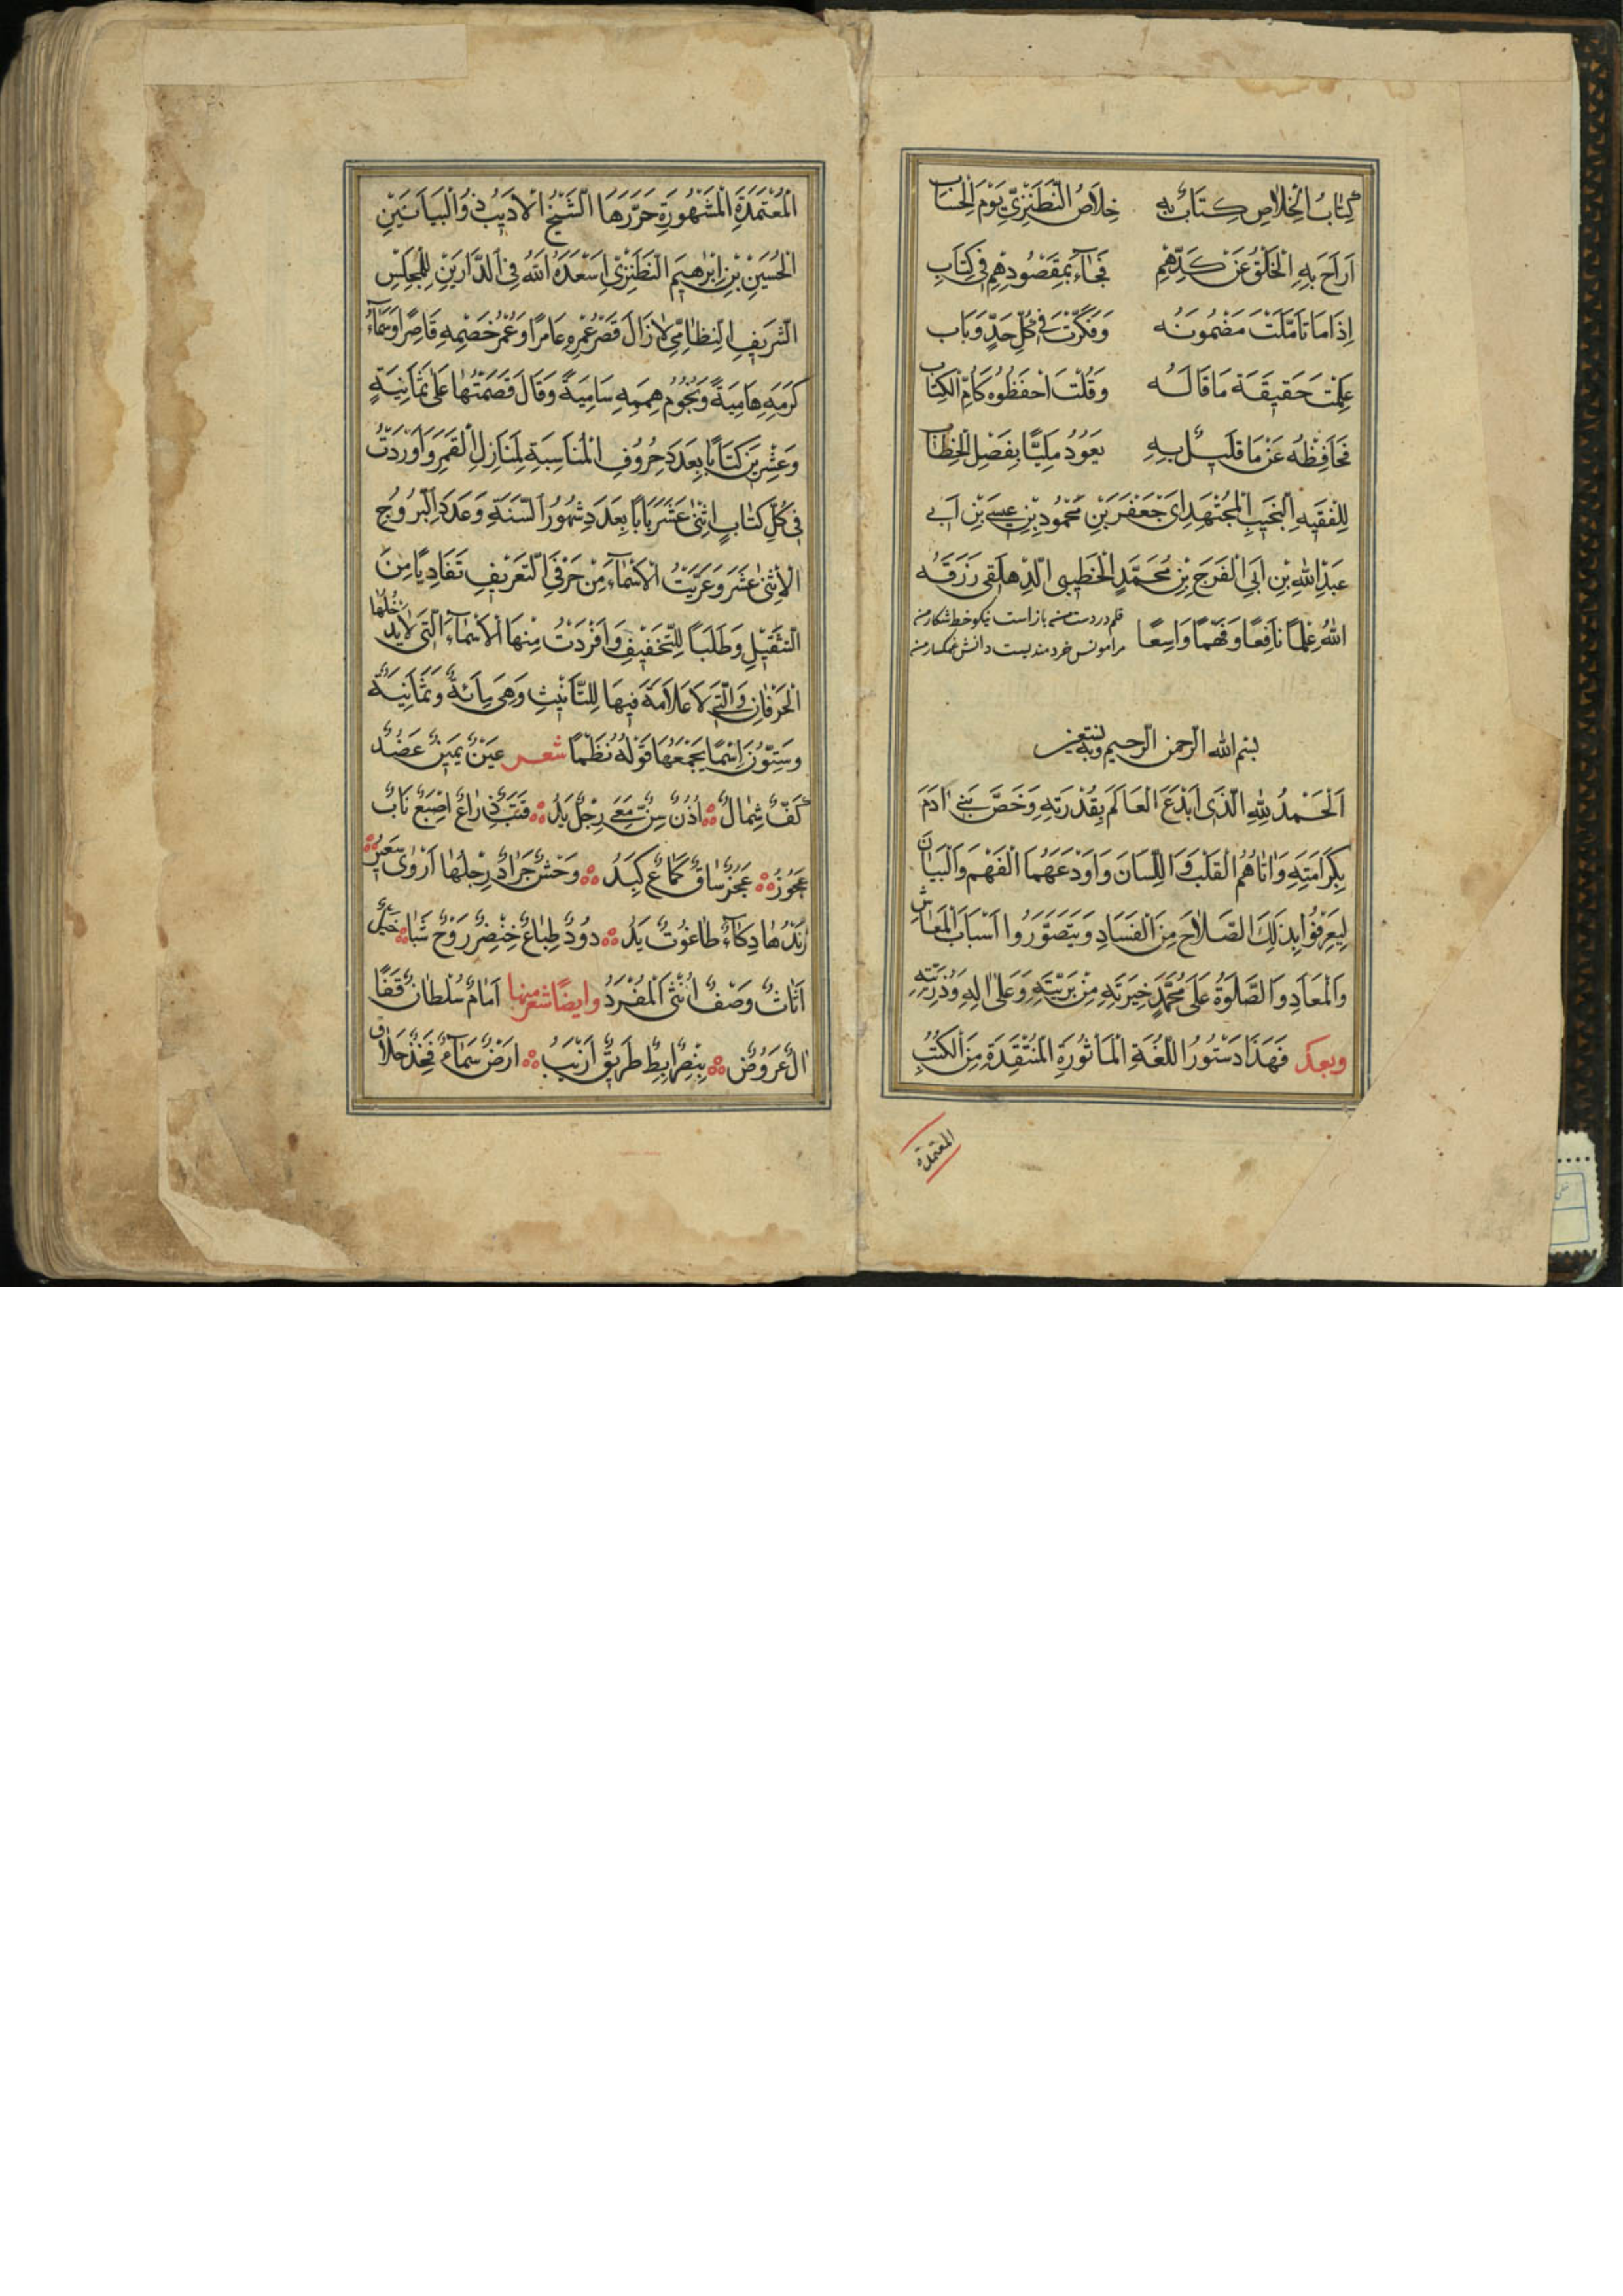 كِتَابُ الْخِلَاصِ كِتَابٌ بِهِ خِلَاصُ النَّطَنْزِيِّ يَوْمَ الْحِسَابِ
اَرَاحَ بِهِ الْخَلْقَ عَنْ كَدِّهِمْ فَجَاءَ بِمَقْصُودِهِمْ فِي كِتَابِ
اِذَا مَا تَاَمَّلْتَ مَضْمُونَهُ وَفَكَّرْتَ فِي كُلِّ حَدٍّ وَبَابِ
عَلِمْتَ حَقِيقَةَ مَا قَالَهُ وَقُلْتَ احْفَظُوهُ كَاُمِّ الْكِتَابِ
فَحَافِظْهُ عَنْ مَا قَلِيلٍ بِهِ يَعُودُ مَلِيًّا بِفَصْلِ الْخِطَابِ
لِلْفَقِيهِ النَّجِيبِ الْمُجْتَهِدِ اَبِي جَعْفَرَ بْنِ مَحْمُودِ بْنِ عِيسَى بْنِ اَبِي
عَبْدِ اللهِ بْنِ اَبِي الْفَرَجِ بْنِ مُحَمَّدٍ الْخَطِيبِي رَزَقَهُ
اللهُ عِلْمًا نَافِعًا وَفَهْمًا وَاسِعًا
قلم در دست من باز است نیکو خط شکار من
مرا مونس خردمندیست دانش غمگسار من
بسم الله الرحمن الرحيم وبه نستعين
اَلْحَمْدُ لِلّٰهِ الَّذِي اَبْدَعَ الْعَالَمَ بِقُدْرَتِهِ وَخَصَّ بَنِي اٰدَمَ
بِكَرَامَتِهِ وَاٰتَاهُمُ الْقَلْبَ وَاللِّسَانَ وَاَوْدَعَهُمَا الْفَهْمَ وَالْبَيَانَ
لِيَعْرِفُوا بِذٰلِكَ الصَّلَاحَ مِنَ الْفَسَادِ وَيَتَصَوَّرُوا اَسْبَابَ الْمَعَاشِ
وَالْمَعَادِ وَالصَّلٰوةُ عَلَى مُحَمَّدٍ خِيَرَتِهِ مِنْ بَرِيَّتِهِ وَعَلَى اٰلِهِ وَذُرِّيَّتِهِ
وبعد فَهَذَا دَسْتُورُ اللُّغَةِ الْمَاْثُورَةِ الْمُنْتَقَدَةِ مِنَ الْكُتُبِ
المعتمدة
الْمُعْتَمَدَةِ الْمَشْهُورَةِ حَرَّرَهَا الشَّيْخُ الْاَدِيبُ ذُو الْبَيَانَيْنِ
الْحُسَيْنُ بْنُ اِبْرٰهِيمَ النَّطَنْزِيُّ اَسْعَدَهُ اللهُ فِي الدَّارَيْنِ لِلْمَجْلِسِ
الشَّرِيفِ النِّظَامِيِّ لَا زَالَ قَصْرُ عُمْرِهِ عَامِرًا وَعُمْرُ خَصْمِهِ قَاصِرًا وَسَمَاءُ
كَرَمِهِ هَامِيَةً وَنُجُومُ هِمَمِهِ سَامِيَةً وَقَالَ قَصَمْتُهَا عَلَى ثَمَانِيَةٍ
وَعِشْرِينَ كِتَابًا بِعَدَدِ حُرُوفِ الْمُنَاسِبَةِ لِمَنَازِلِ الْقَمَرِ وَاَوْرَدْتُ
فِي كُلِّ كِتَابٍ اِثْنَى عَشَرَ بَابًا بِعَدَدِ شُهُورِ السَّنَةِ وَعَدَدِ الْبُرُوجِ
الْاِثْنَى عَشَرَ وَعَرَّيْتُ الْاَسْمَاءَ مِنْ حَرْفَيِ التَّعْرِيفِ تَفَادِيًا مِنَ
التَّثْقِيلِ وَطَلَبًا لِلتَّخْفِيفِ وَاَفْرَدْتُ مِنْهَا الْاَسْمَاءَ الَّتِي لَا يَدْخُلُهَا
الْحَرْفَانِ وَالَّتِي لَا عَلَامَةَ فِيهَا لِلتَّاْنِيثِ وَهِيَ مِائَةٌ وَثَمَانِيَةٌ
وَسِتُّونَ اِسْمًا يَجْمَعُهَا قَوْلُهُ نَظْمًا شعر عَيْنٌ يَمِينٌ عَضُدٌ
كَفٌّ شِمَالٌ اُذُنٌ سِنٌّ مِعًى رِجْلٌ يَدٌ قَتَبٌ ذِرَاعٌ اِصْبَعٌ نَابٌ
عَجُوزٌ عَجُزٌ سَاقٌ كُرَاعٌ كَبِدٌ وَحْشٌ جَرَادٌ رِجْلُهَا اَرْوٰى سَعِيرٌ
زَنْدُهَا ذُكَاءٌ طَاغُوتُ يَدٌ دُودٌ طِبَاعٌ خِنْصِرٌ رَوْحٌ شَبَا خَيْلٌ
اَثَاثٌ وَصْفُ اُنْثَى الْمُفْرَدُ وايضًا شعر منها اَمَامُ سُلْطَانٌ قَفًا
اٰلٌ عَرُوضٌ بِنْصِرٌ اِبِطٌ طَرِيقٌ اَرْنَبُ اَرْضٌ سَمَاءٌ فَخِذٌ